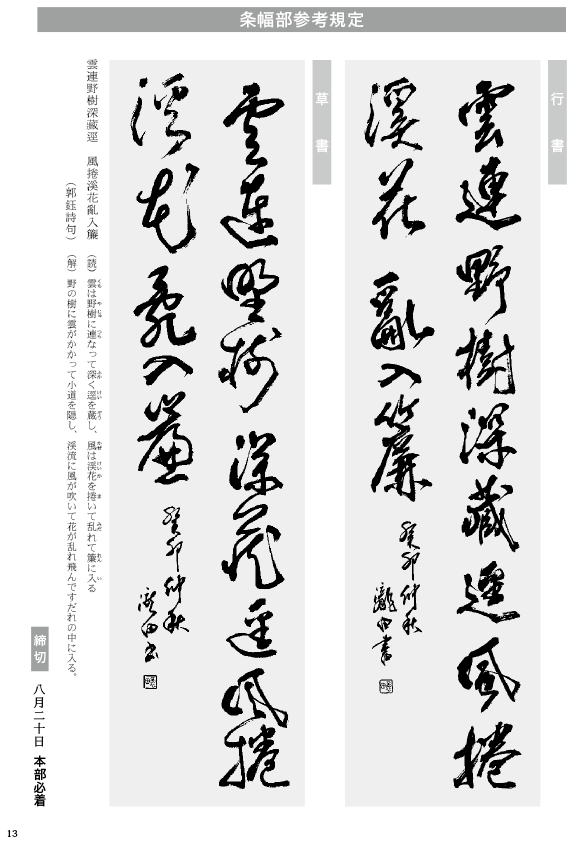 条幅部参考規定
行書
雲連野樹深藏逕風捲
溪花亂入簾
癸卯仲秋
書
草書
雲連野樹深藏逕風捲
溪花亂入簾
癸卯仲秋
雲連野樹深藏逕　風捲溪花亂入簾
（郭鈺詩句）
（読）雲は野樹に連なって深く逕を蔵し、風は渓花を捲いて乱れて簾に入る
（解）野の樹に雲がかかって小道を隠し、渓流に風が吹いて花が乱れ飛んですだれの中に入る。
締切
八月二十日　本部必着
13